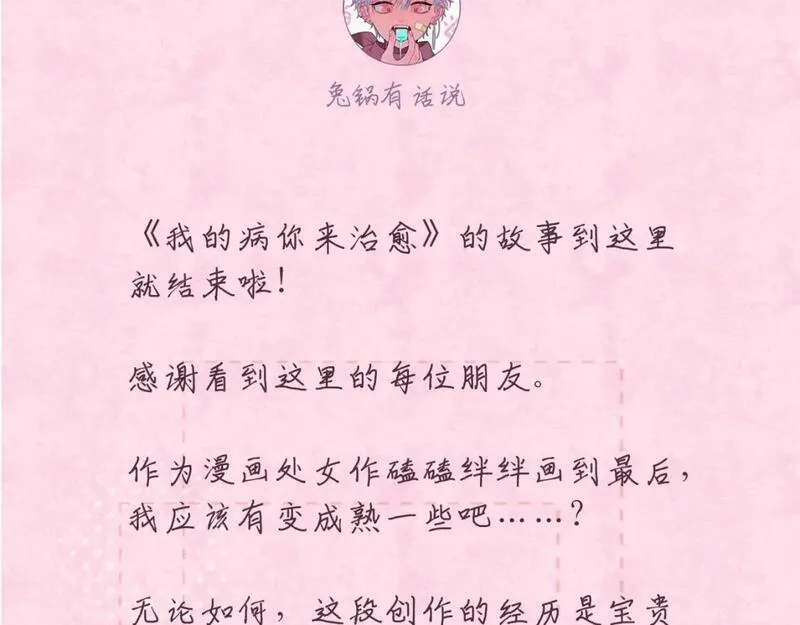 兔锅有话说
《我的病你来治愈》的故事到这里
就结束啦！
感谢看到这里的每位朋友。
作为漫画处女作磕磕绊绊画到最后，
我应该有变成熟一些吧……？
无论如何，这段创作的经历是宝贵